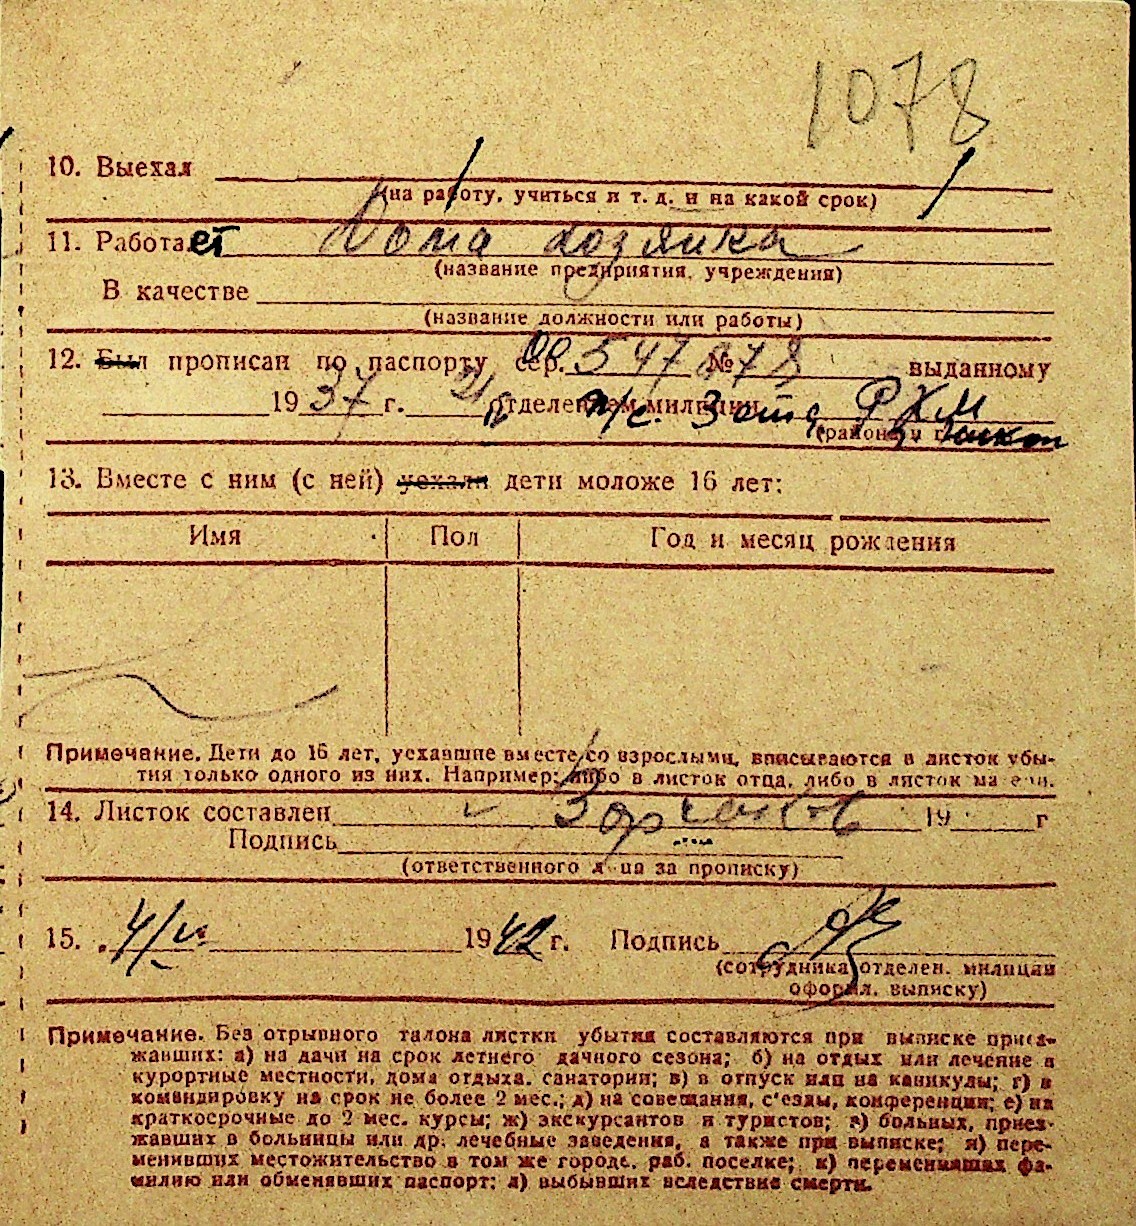 1078
10. Выехал
(на работу, учиться и т. д. и на какой срок)
11. Работает Дома хозяйка
(название предприятия, учреждения)
В качестве
(название должности или работы)
12. Был прописан по паспорту сер. 547 № 878 выданному
1937 г. отделением милиции п/с. 3 отд. РКМ
(район и г.
13. Вместе с ним (с ней) уехали дети моложе 16 лет:
Имя Пол Год и месяц рождения
Примечание. Дети до 16 лет, уехавшие вместе со взрослыми, вписываются в листок убы-
тия только одного из них. Например: либо в листок отца, либо в листок матери.
14. Листок составлен 19 г
Подпись
(ответственного лица за прописку)
15. 4/ 1942 г. Подпись
(сотрудника отделен. милиции
оформл. выписку)
Примечание. Без отрывного талона листки убытия составляются при выписке приез-
жавших: а) на дачи на срок летнего дачного сезона; б) на отдых или лечение в
курортные местности, дома отдыха, санатории; в) в отпуск или на каникулы; г) в
командировку на срок не более 2 мес.; д) на совещания, с'езды, конференции; е) на
краткосрочные до 2 мес. курсы; ж) экскурсантов и туристов; з) больных, приез-
жавших в больницы или др. лечебные заведения, а также при выписке; и) пере-
менивших местожительство в том же городе, раб. поселке; к) переменивших фа-
милию или обменявших паспорт; л) выбывших вследствие смерти.